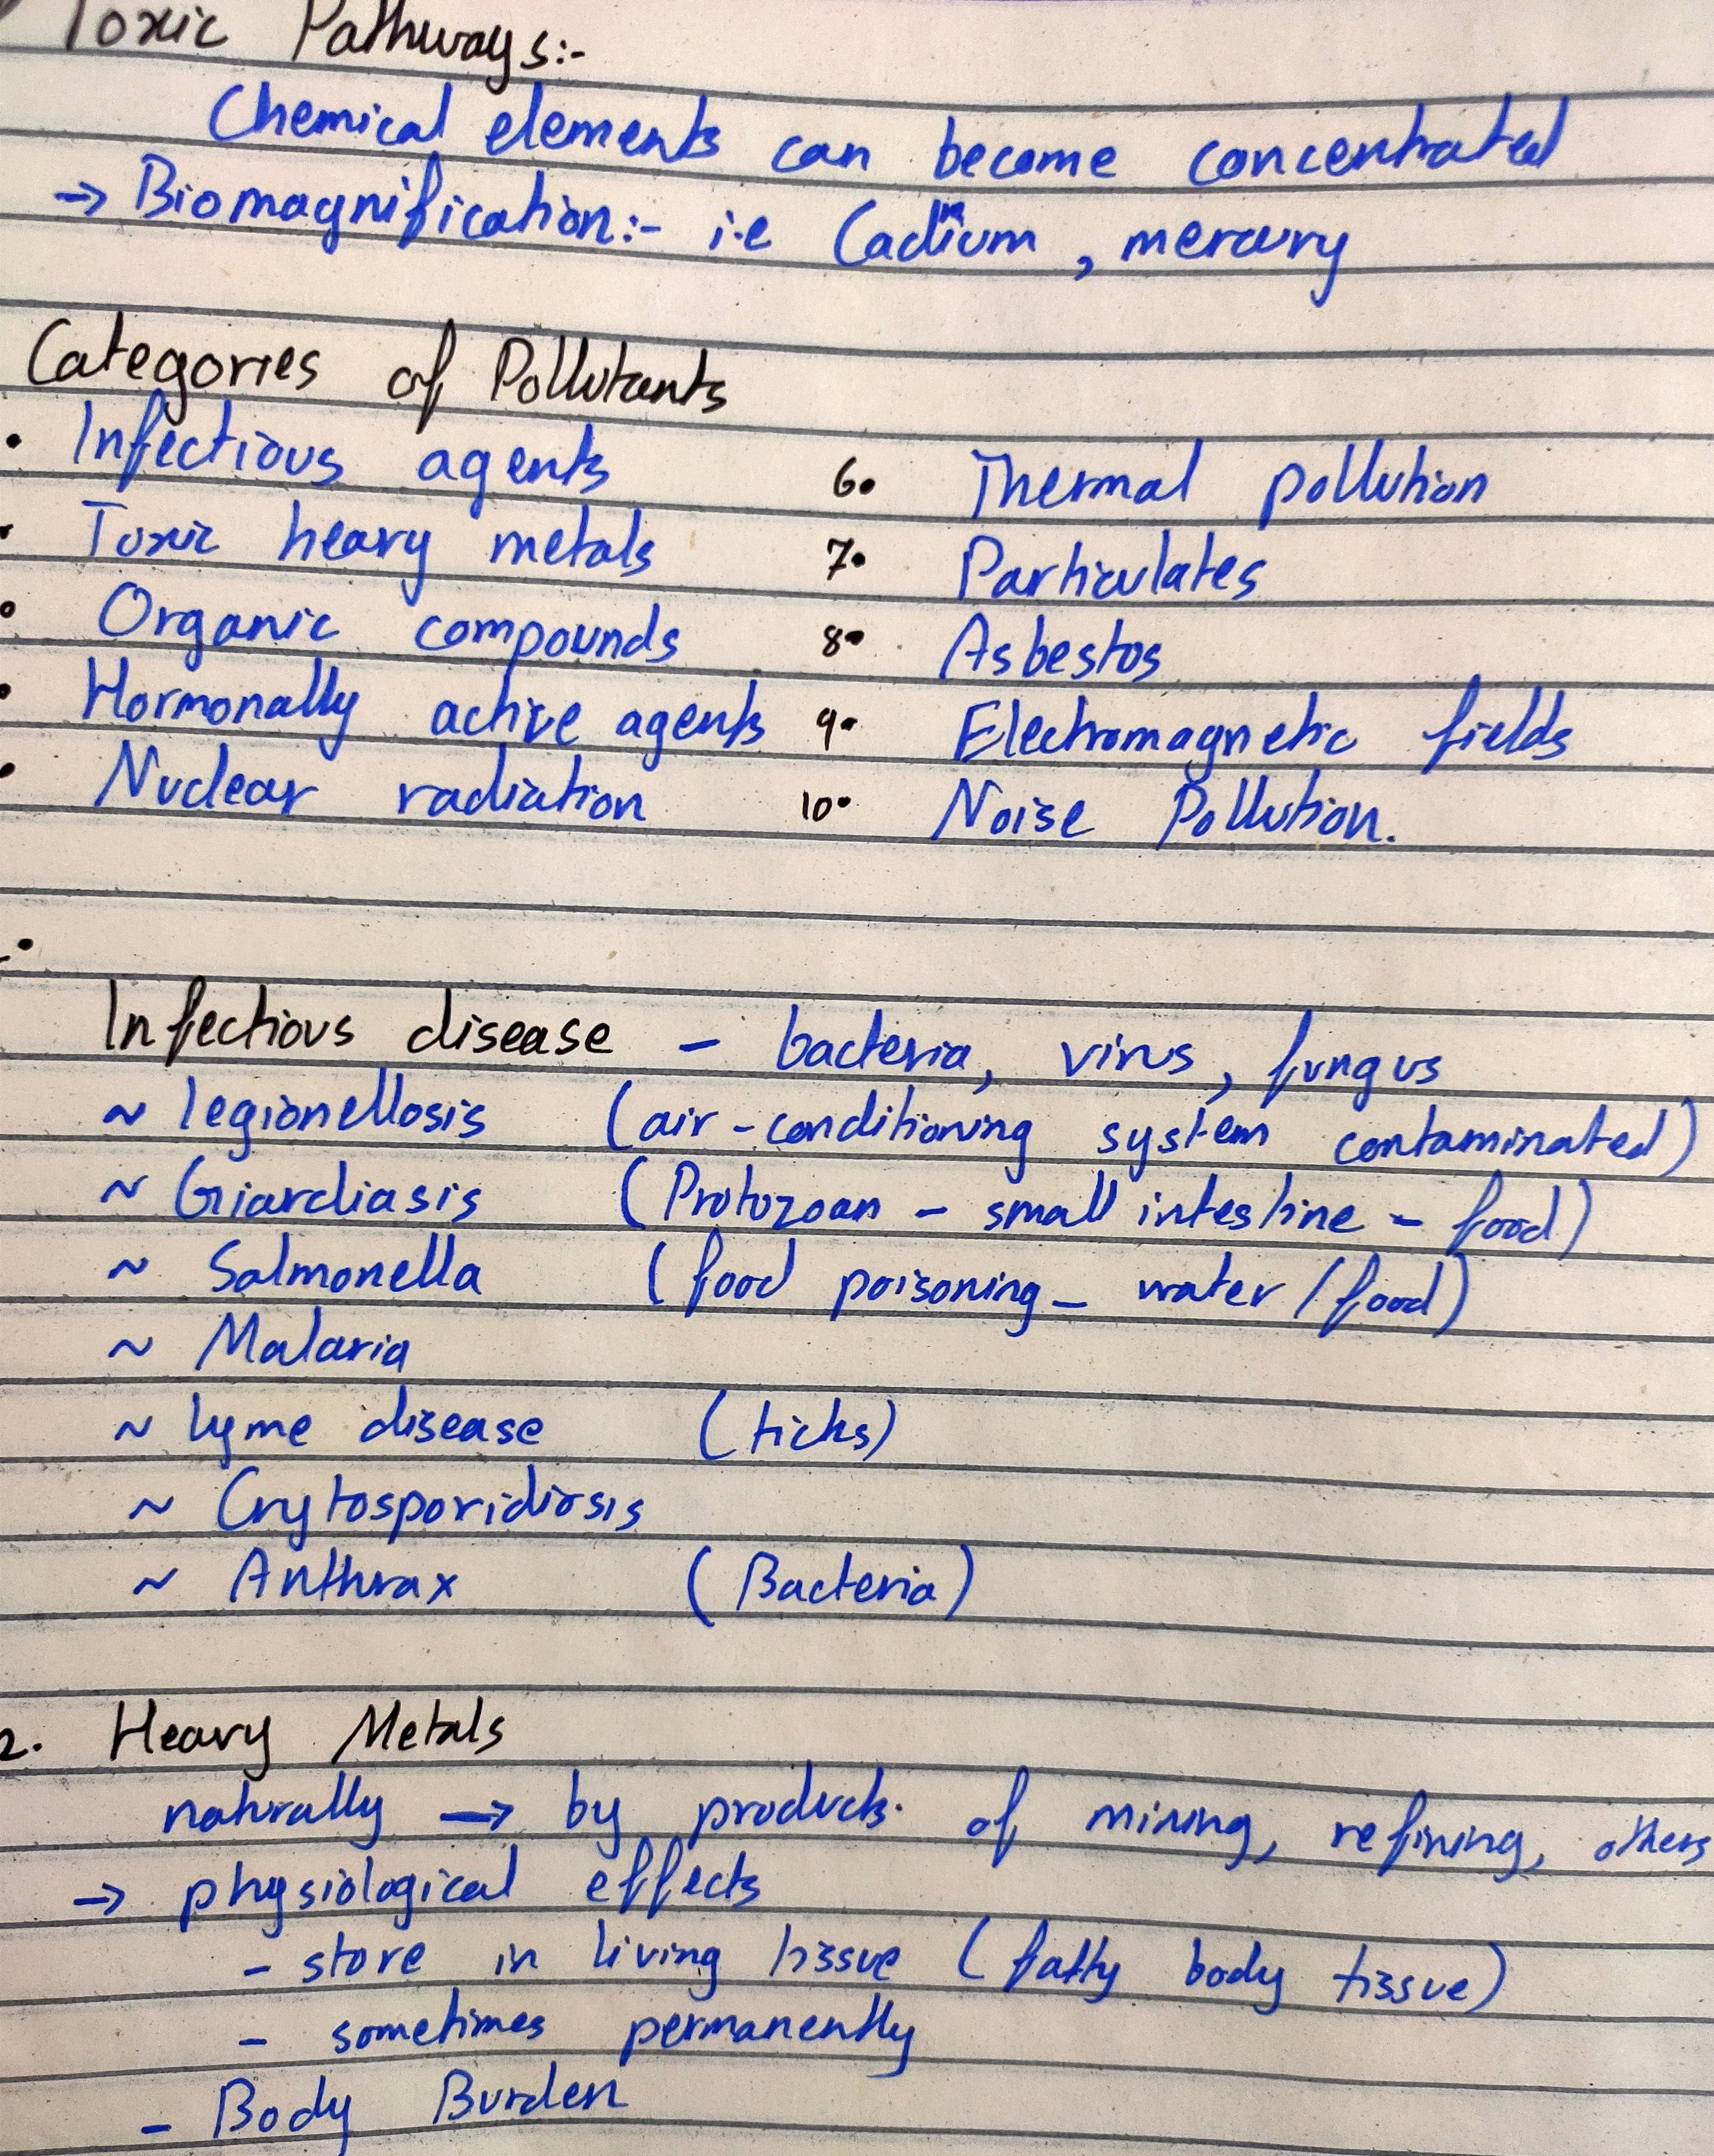 Toxic Pathways:-
Chemical elements can become concentrated
→ Biomagnification:- i.e Cadmium, mercury
Categories of Pollutants
• Infectious agents 6. Thermal pollution
• Toxic heavy metals 7. Particulates
• Organic compounds 8. Asbestos
• Hormonally active agents 9. Electromagnetic fields
• Nuclear radiation 10. Noise Pollution.
Infectious disease - bacteria, virus, fungus
~ legionellosis (air-conditioning system contaminated)
~ Giardiasis (Protozoan - small intestine - food)
~ Salmonella (food poisoning - water/food)
~ Malaria
~ lyme disease (ticks)
~ Crytosporidiosis
~ Anthrax (Bacteria)
2. Heavy Metals
naturally → by products of mining, refining, others
→ physiological effects
- store in living tissue (fatty body tissue)
- sometimes permanently
- Body Burden